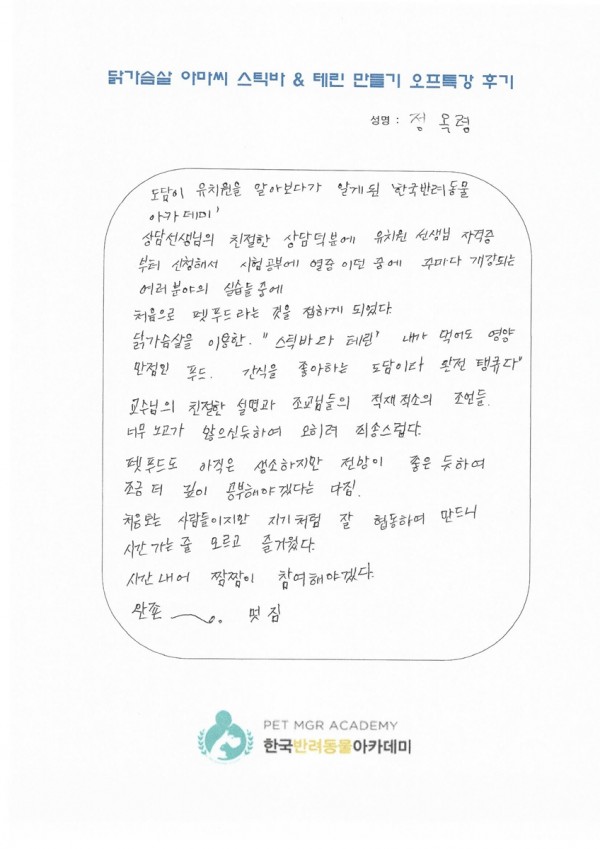 닭가슴살 아마씨 스틱바 & 테린 만들기 오프특강 후기
성명 : 정옥령
도담이 유치원을 알아보다가 알게된 '한국반려동물
아카데미'
상담선생님의 친절한 상담덕분에 유치원 선생님 자격증
부터 신청해서 시험공부에 열중 이던 중에 주마다 개강되는
여러분야의 실습들 중에
처음으로 펫푸드라는 것을 접하게 되었다.
닭가슴살을 이용한. "스틱바와 테린" 내가 먹어도 영양
만점인 푸드. 간식을 좋아하는 도담이라 완전 탱큐다"
교수님의 친절한 설명과 조교님들의 적재적소의 조언들.
너무 노고가 많으신듯하여 오히려 죄송스럽다.
펫푸드도 아직은 생소하지만 전망이 좋은 듯하여
조금 더 깊이 공부해야겠다는 다짐.
처음보는 사람들이지만 지기처럼 잘 협동하여 만드니
시간 가는 줄 모르고 즐거웠다.
시간내어 짬짬이 참여해야겠다.
완죤 멋짐
PET MGR ACADEMY
한국반려동물아카데미